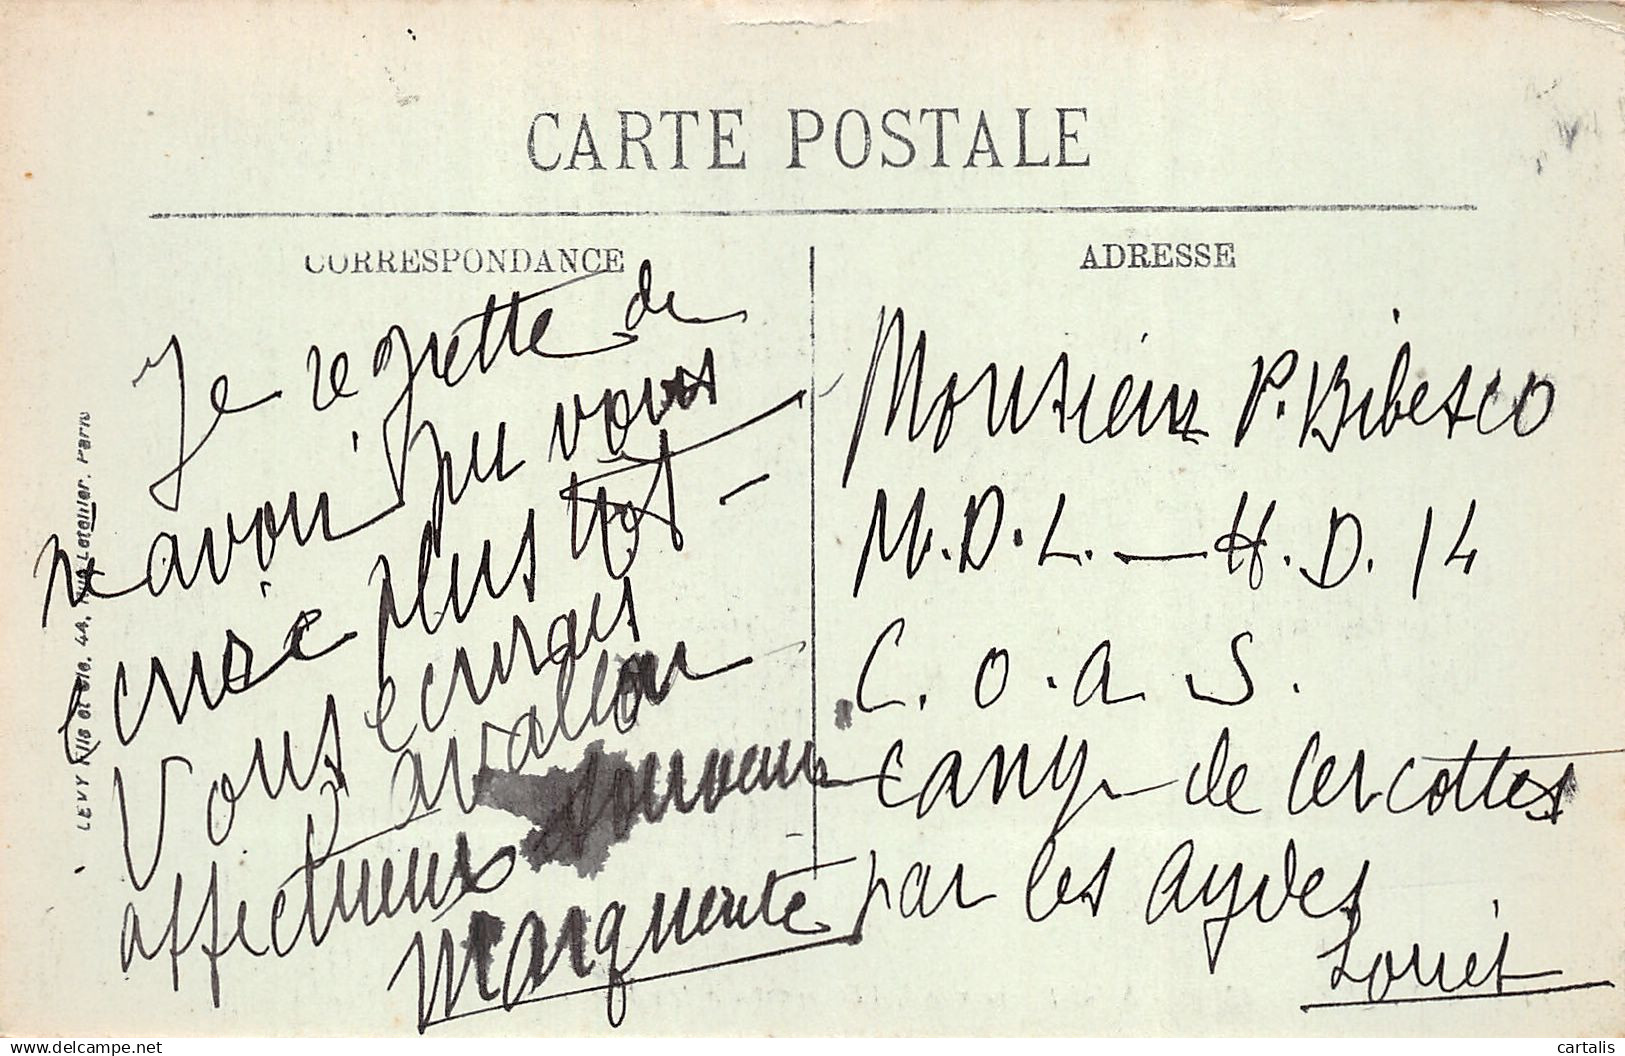 CARTE POSTALE
CORRESPONDANCE
Je regrette de
ne avoir pu vous
ecrire plus tôt -
Vous ecrirais
avallon
affectueux souvenir
Marguerite
ADRESSE
Monsieur P. Bibesco
M.D.L. — H.D. 14
C.O.A.S.
Camp de Cercottes
par les aydes
Loiret
LEVY Fils et Cie, 44, Rue Letellier, Paris
cartalis